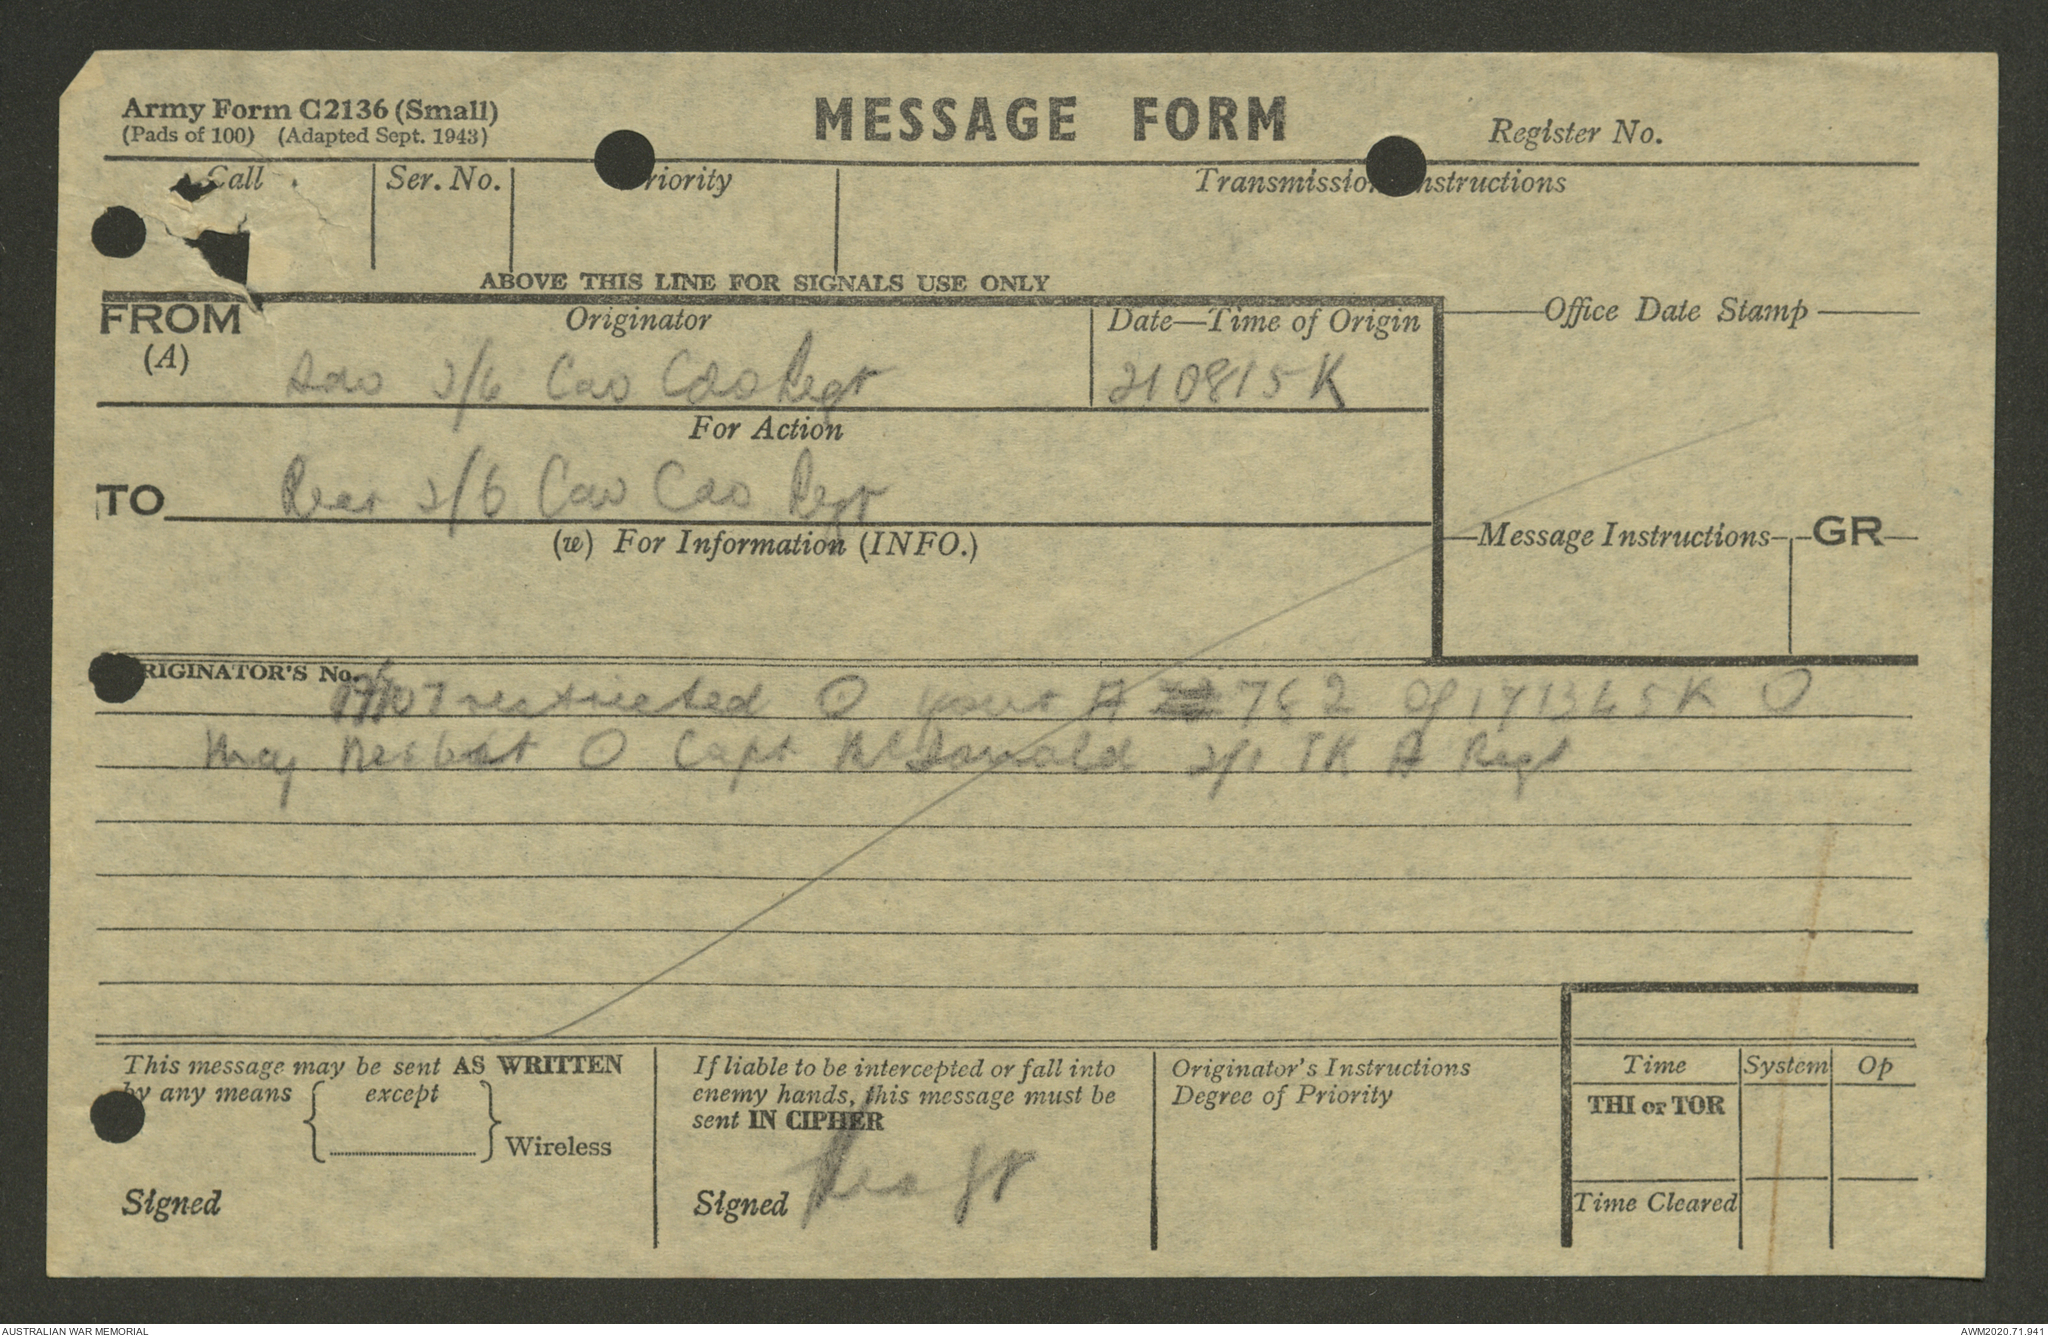 Army Form C2136 (Small)
(Pads of 100) (Adapted Sept. 1943)
MESSAGE FORM
Register No.
Call Ser. No. riority Transmissio nstructions
ABOVE THIS LINE FOR SIGNALS USE ONLY
FROM Originator Date—Time of Origin Office Date Stamp
(A)
2/6 Cav Cdo Regt 210815K
For Action
TO Rear 2/6 Cav Cdo Regt
(w) For Information (INFO.)
Message Instructions GR
RIGINATOR'S No.
restricted O your A 762 of 171345K O
Maj Nesbit O Capt McDonald 2/1 TK A Regt
This message may be sent AS WRITTEN
by any means except
Wireless
Signed
If liable to be intercepted or fall into
enemy hands, this message must be
sent IN CIPHER
Signed
Originator's Instructions
Degree of Priority
Time System Op
THI or TOR
Time Cleared
AUSTRALIAN WAR MEMORIAL
AWM2020.71.941